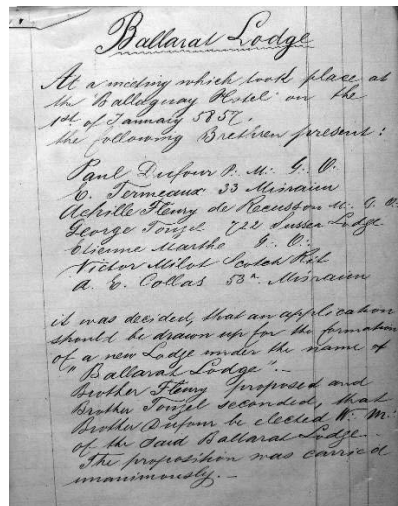 Ballarat Lodge
At a meeting which took place at
the Ballaguay Hotel on the
1st of January 5857.
the following Brethren present:
Paul Dufour P. M. G. O.
E. Termeaux 33 Misraim
Achille Fleury de Recusson M. G. O.
George Touzel 722 Sussex Lodge
Etienne Marthe G. O.
Victor Milot Scotch Rit
A. E. Collas 53n. Misraim
it was decided, that an application
should be drawn up for the formation
of a new Lodge under the name of
"Ballarat Lodge". —
Brother Fleury proposed and
Brother Touzel seconded, that
Brother Dufour be elected W. M.
of the said Ballarat Lodge. —
The proposition was carried
unanimously. —